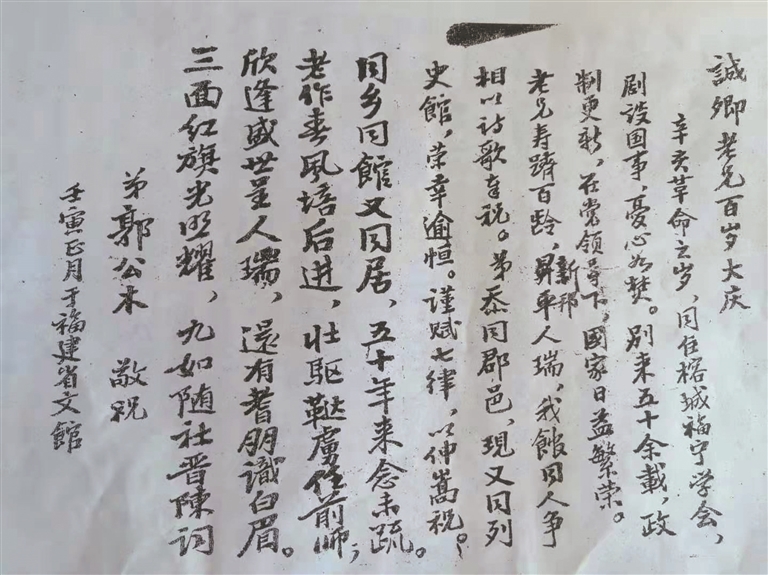 誠卿老兄百岁大庆
辛亥革命之岁，同任榕城福宁学会，
剧设国事，憂心如焚。别来五十余载，政
制更新，在党领导下，國家日益繁荣。
老兄寿躋百龄，昇平人瑞，我館同人争
新邦
相以詩歌为祝。弟忝同郡邑，現又同列
史館，荣幸逾恒。谨赋七律，以伸嵩祝。
同乡同館又同居，五十年来念未疏。
老作春风培后进，壮驱鞑虏任前师；
欣逢盛世呈人瑞，还有耆朋識白眉。
三面红旗光照耀，九如随社晋陳词
弟郭公木 敬祝
壬寅正月于福建省文館